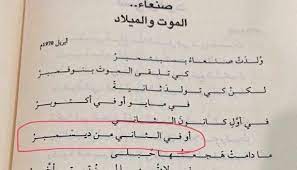 صنعاء..
الموت والميلاد
أبريل 1970م
وُلدتْ صنعاءُ بسبتمبرْ
كي تلقى الموتَ بنوفمبرْ
لكنْ كي تولدَ ثانيةً
في مايو أو في أكتوبرْ
في أوّلِ كانونَ الثاني
أو في الثاني من ديسمبرْ
ما دامتْ هجعتُها حُبلى